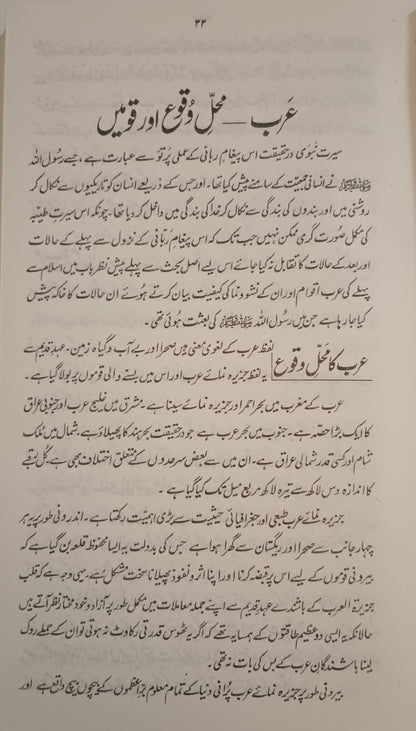 ۳۳
عَرب — محلِّ وُقوع اور قومیں
سیرتِ نبَوی درحقیقت اس پیغامِ ربانی کے عملی پَرتَو سے عبارت ہے، جسے رسُول اللہ
ﷺ نے انسانی جمعیّت کے سامنے پیش کیا تھا۔ اور جس کے ذریعے انسان کو تاریکیوں سے نکال کر
روشنی میں اور بندوں کی بندگی سے نکال کر خدا کی بندگی میں داخل کر دیا تھا۔ چونکہ اس سیرتِ طیبہ
کی مکمل صورت گری ممکن نہیں جب تک کہ اس پیغامِ رَبّانی کے نزول سے پہلے کے حالات
اور بعد کے حالات کا تقابل نہ کیا جائے اس لیے اصل بحث سے پہلے پیشِ نظر باب میں اسلام سے
پہلے کی عرب اقوام اور ان کے نشوونما کی کیفیت بیان کرتے ہُوئے ان حالات کا خاکہ پیش
کیا جا رہا ہے جن میں رسُول اللہ ﷺ کی بعثت ہُوئی تھی۔
عرب کا محَلِّ وقوع لفظ عرب کے لغوی معنی ہیں صحرا اور بے آب و گیاہ زمین۔ عہدِ قدیم سے
یہ لفظ جزیرہ نمائے عرب اور اس میں بسنے والی قوموں پر بولا گیا ہے۔
عرب کے مغرب میں بحرِ احمر اور جزیرہ نمائے سینا ہے۔ مشرق میں خلیج عرب اور جنوبی عراق
کا ایک بڑا حصّہ ہے۔ جنوب میں بحرِ عرب ہے جو درحقیقت بحرِ ہند کا پھیلاؤ ہے۔ شمال میں مُلک
شام اور کسی قدر شمالی عراق ہے۔ ان میں سے بعض سرحدوں کے متعلق اختلاف بھی ہے۔ کُل رقبے
کا اندازہ دس لاکھ سے تیرہ لاکھ مربع میل تک کیا گیا ہے۔
جزیرہ نمائے عرب طبعی اور جغرافیائی حیثیت سے بڑی اہمیّت رکھتا ہے۔ اندرونی طور پر یہ ہر
چہار جانب سے صحرا اور ریگستان سے گھِرا ہوا ہے جس کی بدولت یہ ایسا محفوظ قلعہ بن گیا ہے کہ
بیرونی قوموں کے لیے اس پر قبضہ کرنا اور اپنا اثر و نفُوذ پھیلانا سخت مشکل ہے۔ یہی وجہ ہے کہ قلب
جزیرۃ العرب کے باشندے عہدِ قدیم سے اپنے جملہ معاملات میں مکمل طور پر آزاد و خود مختار نظر آتے ہیں
حالانکہ یہ ایسی دو عظیم طاقتوں کے ہمسایہ تھے کہ اگر یہ ٹھوس قدرتی رکاوٹ نہ ہوتی تو ان کے حملے روک
لینا باشندگانِ عرب کے بس کی بات نہ تھی۔
بیرونی طور پر جزیرہ نمائے عرب پُرانی دنیا کے تمام معلوم بَرِّاعظموں کے بیچوں بیچ واقع ہے اور